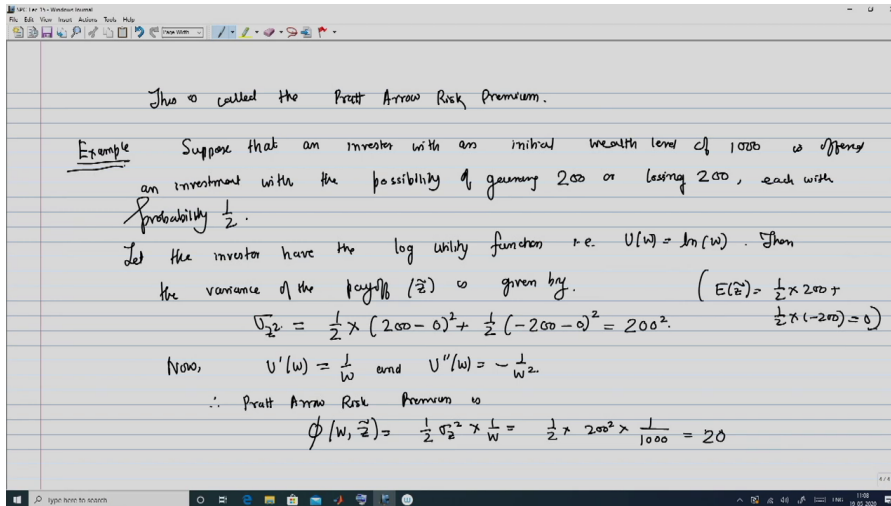 SPC Lec 15 - Windows Journal
File Edit View Insert Actions Tools Help
Page Width
This is called the Pratt Arrow Risk Premium.
Example Suppose that an investor with an initial wealth level of 1000 is offered
an investment with the possibility of gaining 200 or losing 200, each with
probability 1/2.
Let the investor have the log utility function i.e. U(W) = ln(W). Then
the variance of the payoff (z̃) is given by. (E(z̃) = 1/2 × 200 +
1/2 × (-200) = 0)
σ_z̃² = 1/2 × (200 - 0)² + 1/2 (-200 - 0)² = 200².
Now, U'(W) = 1/W and U''(W) = - 1/W².
∴ Pratt Arrow Risk Premium is
ϕ(W, z̃) = 1/2 σ_z² × 1/W = 1/2 × 200² × 1/1000 = 20
4/4
Type here to search
ENG
11:08
19-05-2020